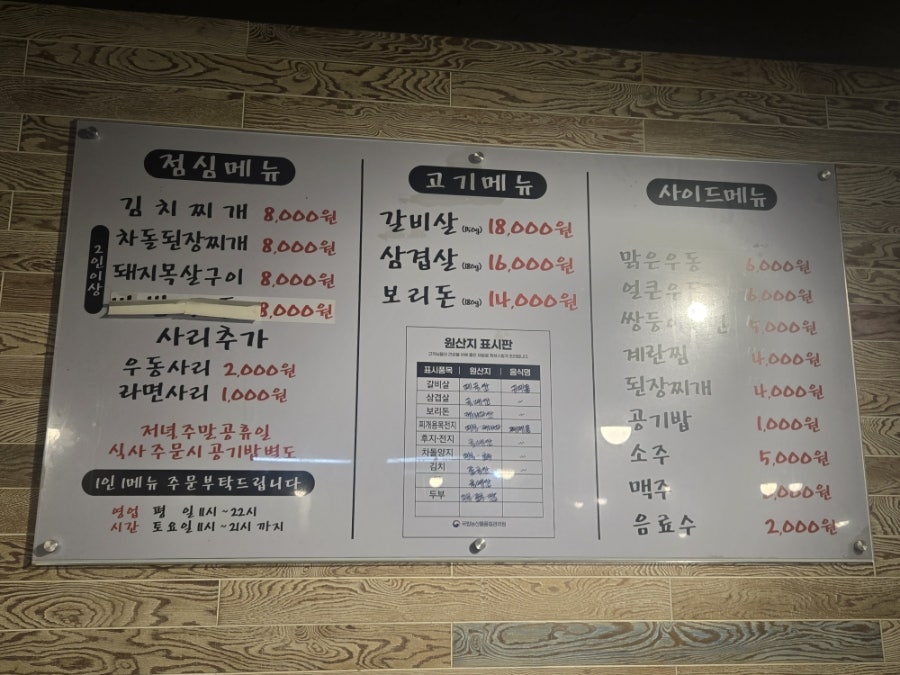 점심메뉴
김치찌개 8,000원
차돌된장찌개 8,000원
돼지목살구이 8,000원
8,000원
2인이상
사리추가
우동사리 2,000원
라면사리 1,000원
저녁 주말 공휴일
식사 주문시 공기밥 별도
1인 1메뉴 주문부탁드립니다
영업 평 일 11시~22시
시간 토요일 11시~21시 까지
고기메뉴
갈비살 18,000원
삼겹살 (180g) 16,000원
보리돈 (180g) 14,000원
원산지 표시판
표시품목 원산지 음식명
갈비살
삼겹살 국내산 〃
보리돈 〃
찌개용목전지
후지·전지 국내산 〃
차돌양지 〃
김치
국내산
두부
국립농산물품질관리원
사이드메뉴
맑은우동 6,000원
얼큰우동 6,000원
5,000원
계란찜 4,000원
된장찌개 4,000원
공기밥 1,000원
소주 5,000원
맥주
음료수 2,000원